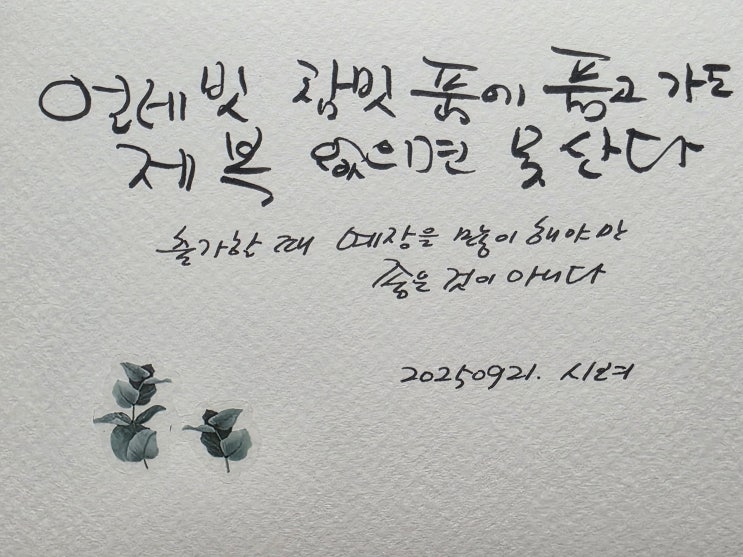 얼레빗 참빗 품에 품고 가도
제 복 없으면 못 산다
출가할 때 예장을 많이 해야만
좋은 것이 아니다
20250921.